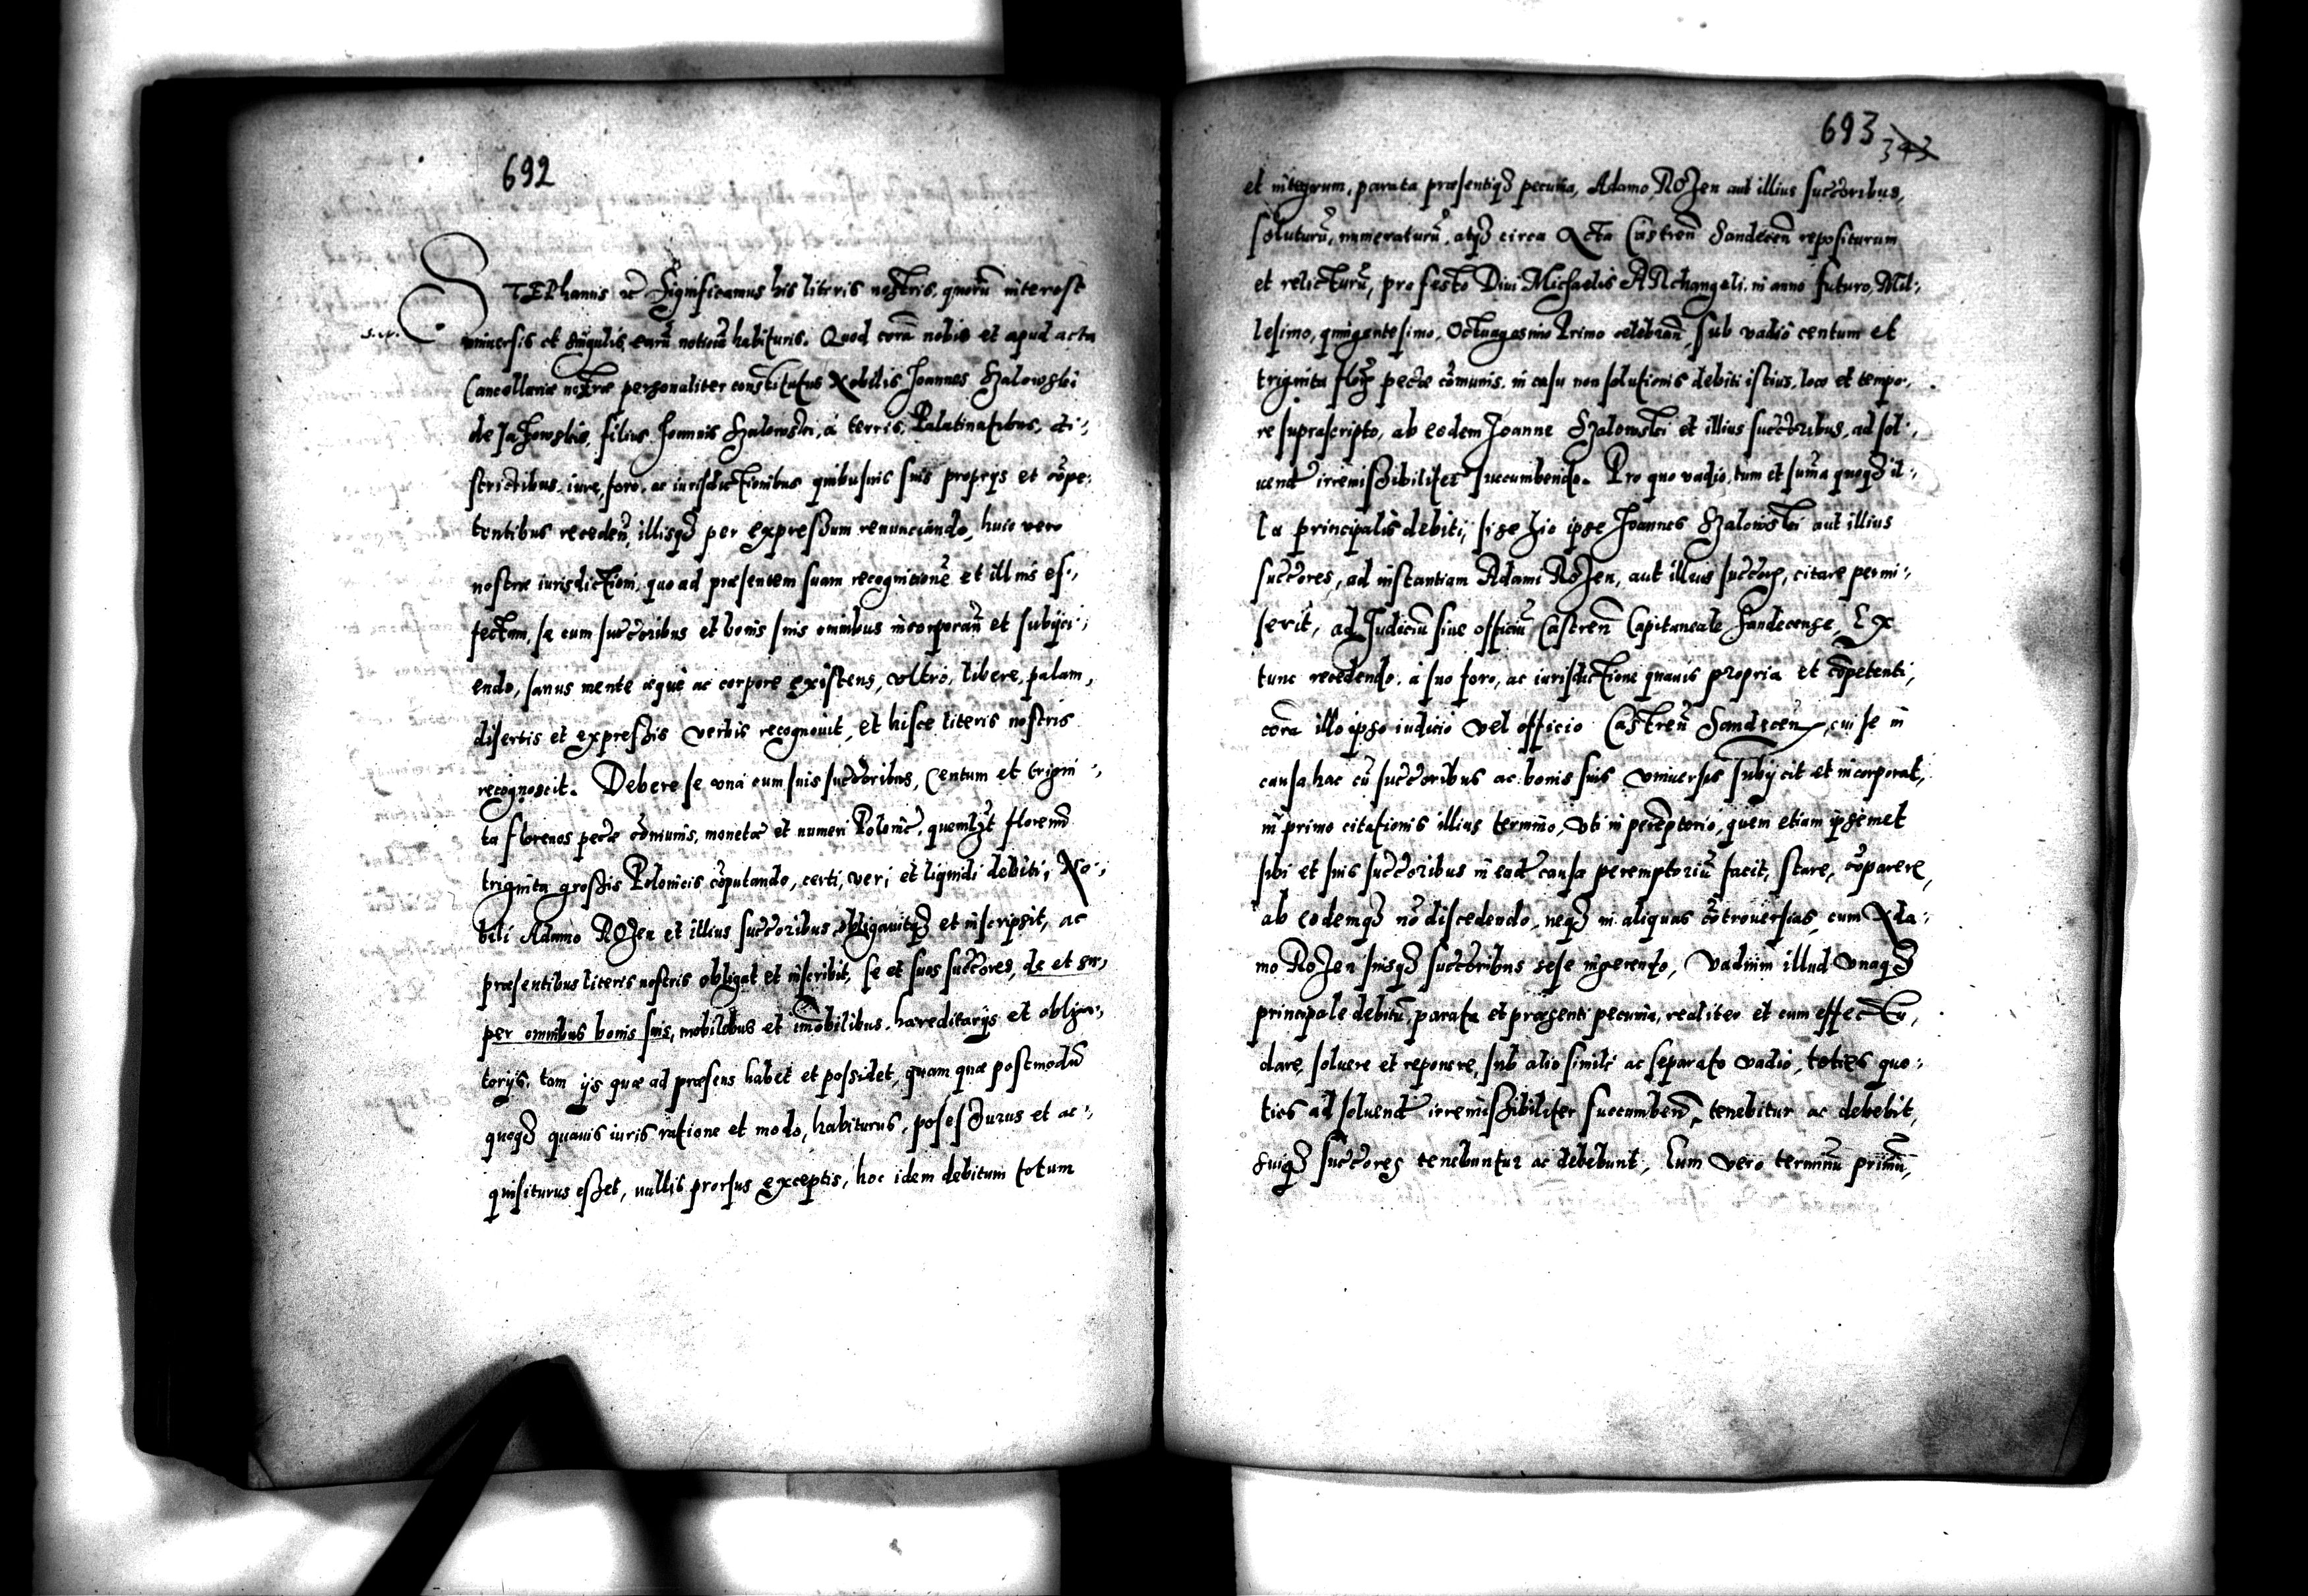 692
STEPhanus etc Significamus his literis nostris, quorũ interest
vniuersis et singulis earũ noticiã habituris. Quod corã nobis et apud acta
Cancellariæ nostræ personaliter constitutus Nobilis Joannes Szalowski
de Jazowsko, filius Joannis Szalowski, à terris, Palatinatibus, di:,
strictibus, iure, foro, ac iurisdictionibus quibusuis suis proprys et cõpe:
tentibus receden̄, illisq3 per expreßum renunciando, huic vero
nostræ iurisdictioni, quo ad præsentem suam recognitionẽ et illius ef:,
fectum, se cum succ̃oribus et bonis suis omnibus incorporan̄ et subyci:,
endo, sanus mente æque ac corpore existens, vltrò, libere, palam,
disertis et expreßis verbis recognouit, et hisce literis nostris
recognoscit. Debere se vna cum suis succ̃oribus, Centum et trigin:,
ta florenos pecũæ cõmunis, monetæ et numeri Poloniĉ, quemlz̃t florenũ
triginta großis Polonicis cõputando, certi, veri et liquidi debiti, No:,
bili Adamo Rožen et illius succ̃oribus obligauitq3 et inscripsit, ac
præsentibus literis nostris obligat et inscribit, se et suos succ̃ores, de et su,
per omnibus bonis suis, mobilibus et im̃obilibus, hæreditarys et obliga:,
torys, tam ys quæ ad præsens habet et possidet, quam quæ postmodũ
quoq3 quouis iuris ratione et modo, habiturus, poseßurus et ac:,
quisiturus eßet, nullis prorsus exceptis, hoc idem debitum totum
693 343
et integrum, parata præsentiq3 pecunia, Adamo Rožen aut illius succ̃oribus,
soluturũ, numeraturũ, atq3 circa Acta Castren̄ Sandecen̄ repositurum
et relicturũ, pro festo Diui Michaelis ARchangeli, in anno futuro, Mil:,
lesimo, quingentesimo, Octuagesimo Primo celebran̄, sub vadio centum et
triginta flor̃ pecũæ cõmunis, in casu non solutionis debiti istius, loco et tempo,
re suprascripto, ab eodem Joanne Szalowski et illius succ̃oribus, ad sol:,
uend̃ irremißibiliter succumbendo. Pro quo vadio, tum et sum̃a quoq3 il:,
la principalis debiti, si se hic ipse Joannes Szalowski aut illius
succ̃ores, ad instantiam Adami Rožen, aut illius succ̃orũ, citare permi:,
serit, ad Judiciũ siue officiũ Castren̄ Capitaneale Sandecense, Ex
tunc recedendo, à suo foro, ac iurisdictione quauis propria et cõpetenti,
corã illo ipso iudicio vel officio Castren̄ Sandecen̄, cui se in
causa hac cũ succ̃oribus ac bonis suis vniuersis subycit et incorporat,
in primo citationis illius termino, vti in perẽptorio, quem etiam ipsemet
sibi et suis succ̃oribus in ead̃ causa peremptoriũ facit, stare, cõparere,
ab eodemq3 nõ discedendo, neq3 in aliquas cõtrouersias, cum Ada:,
mo Rožen suisq3 succ̃oribus sese ingerendo, Vadium illud vnaq3
principale debitũ, parata et præsenti pecunia, realiter et cum effectu,
dare, soluere et reponere, sub alio simili ac separato vadio, toties quo:
ties ad soluend̃ irremißibiliter succumben̄, tenebitur ac debebit,
suiq3 succ̃ores tenebuntur ac debebunt, Eum vero terminũ primũ,